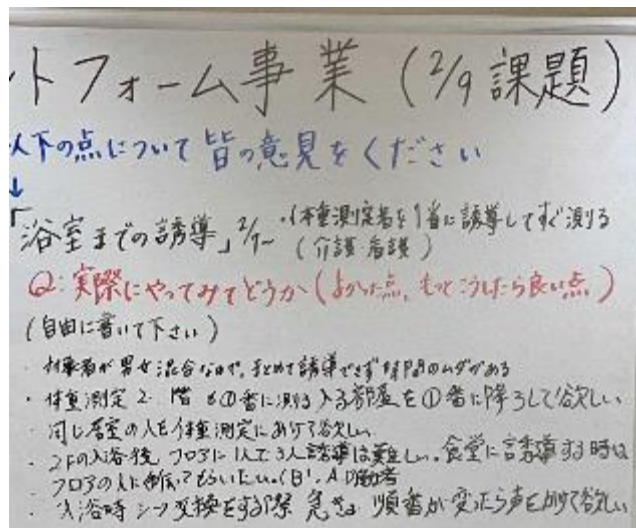 トフォーム事業(2/9課題)
以下の点について皆の意見をください
↓
「浴室までの誘導」2/1~ ・体重測定者を1番に誘導してすぐ測る
(介護 看護)
Q:実際にやってみてどうか(よかった点、もっとこうしたら良い点)
(自由に書いて下さい)
・対象者が男女混合なので、まとめて誘導できず時間のムダがある
・体重測定 2 階も①番に測る 入る部屋を①番に降ろして欲しい
・同じ居室の人を体重測定にあげて欲しい
・2Fの入浴後 フロアに1人で3人誘導は難しい。食堂に誘導する時は
フロアの人に手伝ってもらいたい。(B'、A勤者
・入浴時シーツ交換をする際 急きょ 順番が変ったら声をかけて欲しい